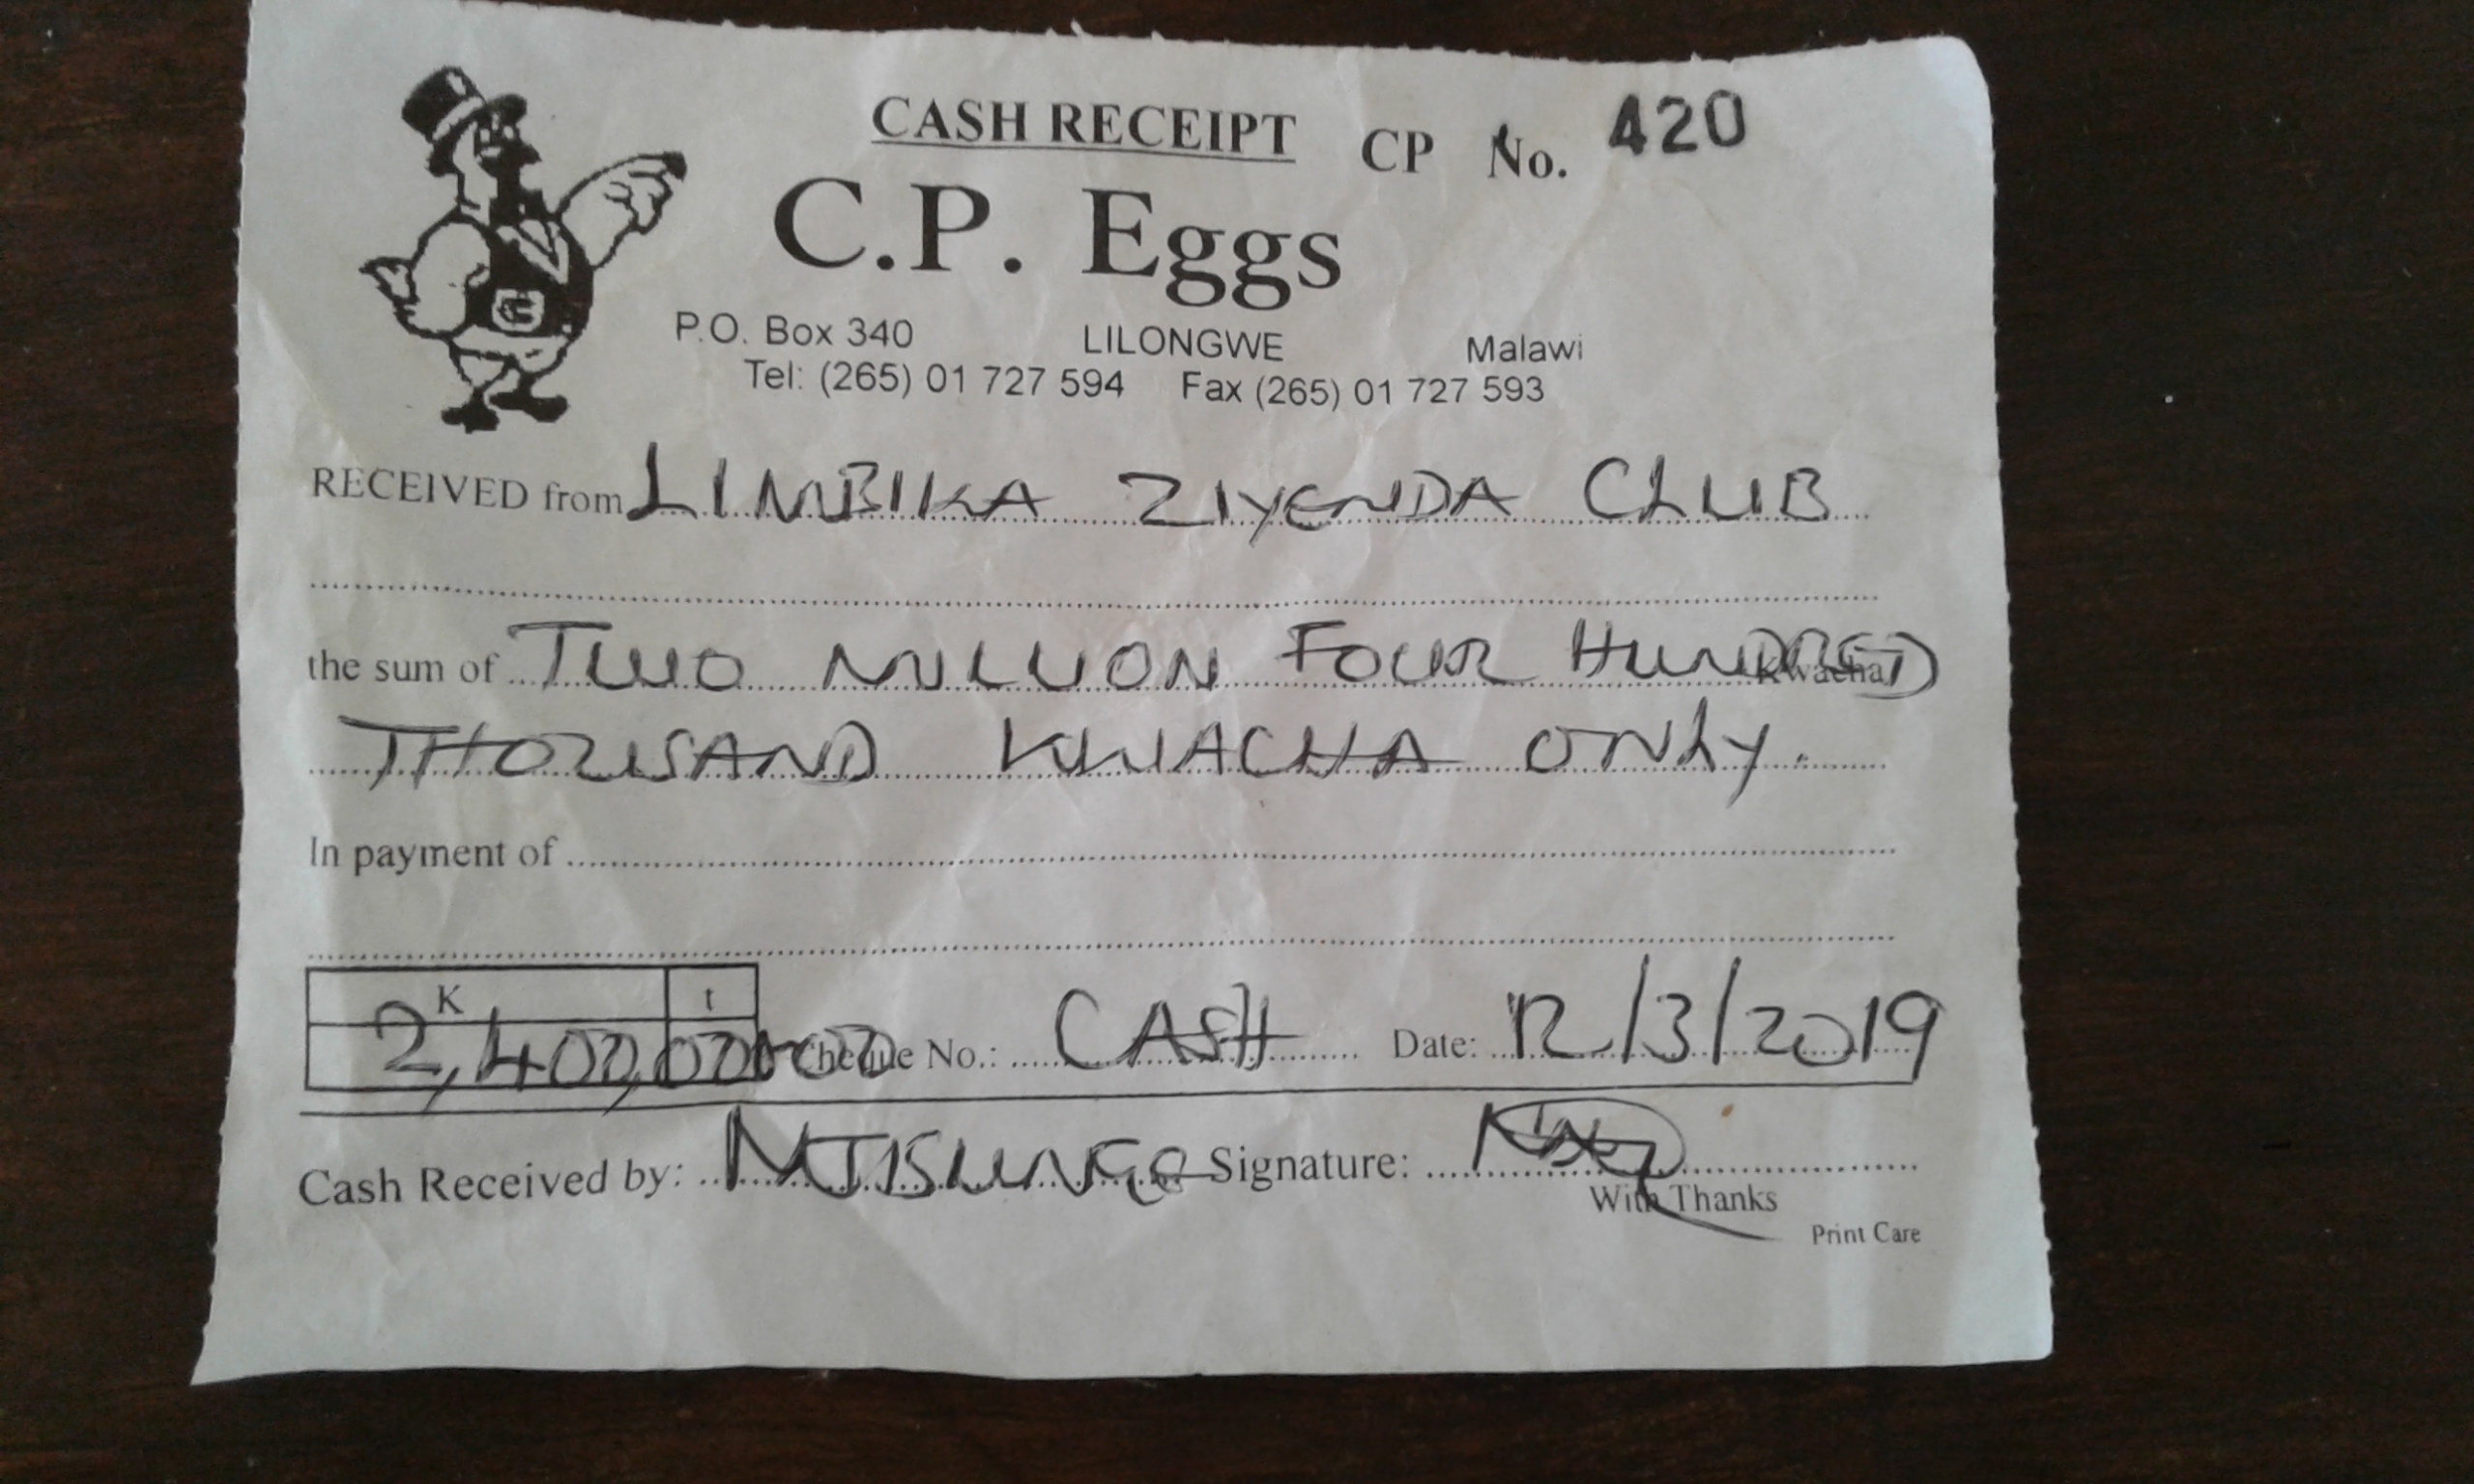 CASH RECEIPT CP No. 420
C.P. Eggs
P.O. Box 340 LILONGWE Malawi
Tel: (265) 01 727 594 Fax (265) 01 727 593
RECEIVED from LIMBIKA ZIYENDA CLUB
the sum of TWO MILLION FOUR HUNDRED Kwacha
THOUSAND KWACHA ONLY.
In payment of
K t
2,400,000=00 Cheque No.: CASH Date: 12/3/2019
Cash Received by: Signature:
With Thanks
Print Care